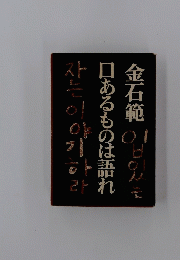 金石範
口あるものは語れ
입 있는
자는 이야기하라